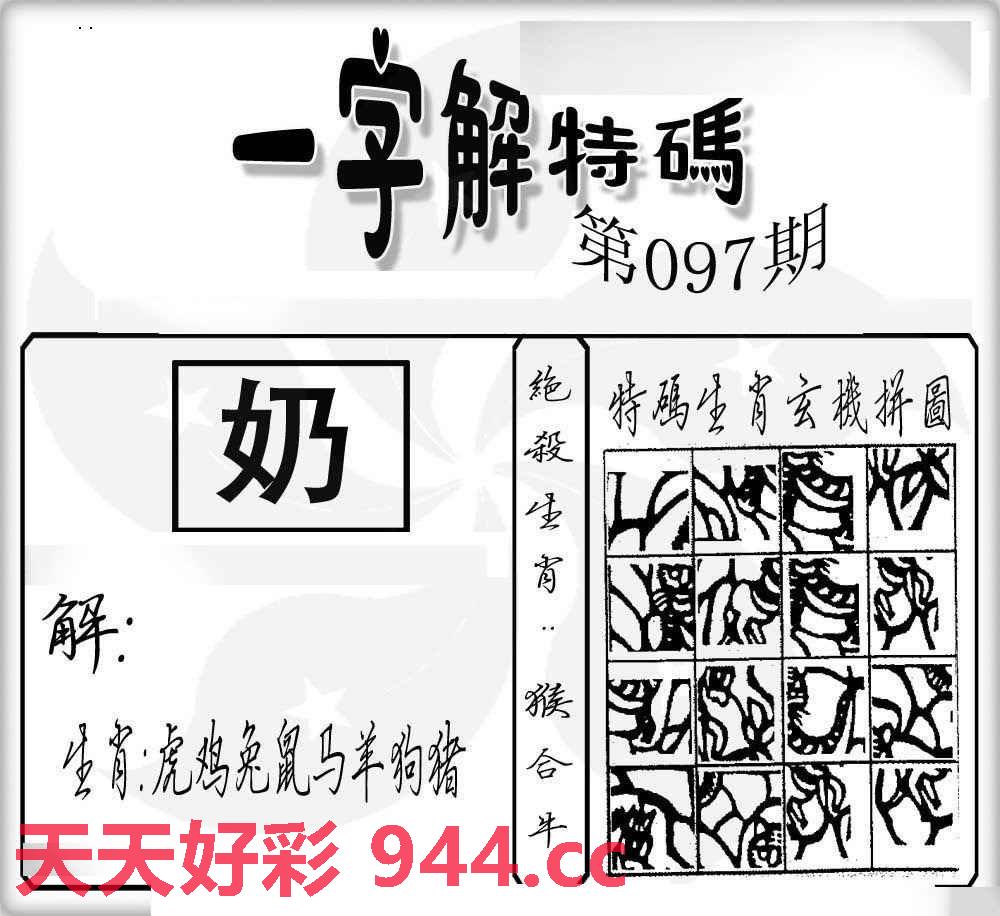 一字解特碼
第097期
奶
解:
生肖:虎鸡兔鼠马羊狗猪
絕殺生肖:猴合牛
特碼生肖玄機拼圖
天天好彩 944.cc